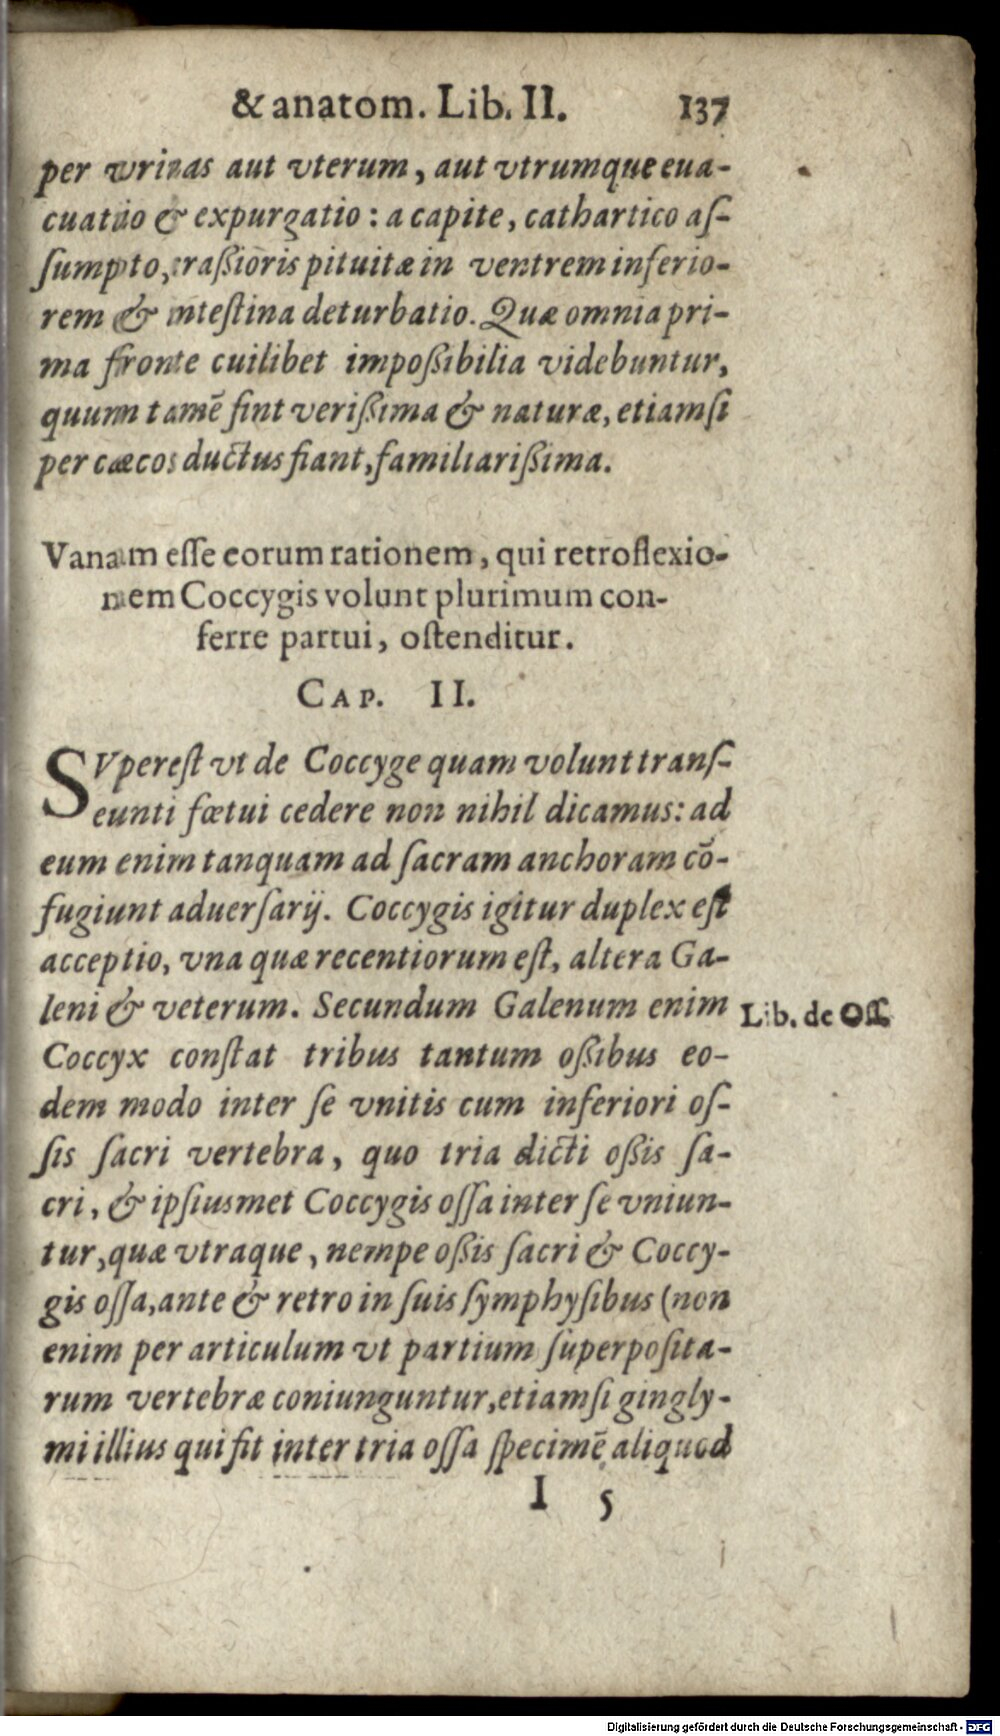 & anatom. Lib. II. 137
per vrinas aut vterum, aut vtrumque eua-
cuatio & expurgatio: a capite, cathartico aſ-
ſumpto, craßioris pituitæ in ventrem inferio-
rem & inteſtina deturbatio. Quæ omnia pri-
ma fronte cuilibet impoßibilia videbuntur,
quum tamē ſint verißima & naturæ, etiamſi
per cæcos ductus fiant, familiarißima.
Vanam eſſe eorum rationem, qui retroflexio-
nem Coccygis volunt plurimum con-
ferre partui, oſtenditur.
CAP. II.
SVpereſt vt de Coccyge quam volunt tranſ-
eunti fœtui cedere non nihil dicamus: ad
eum enim tanquam ad ſacram anchoram cō-
fugiunt aduerſarij. Coccygis igitur duplex eſt
acceptio, vna quæ recentiorum eſt, altera Ga-
leni & veterum. Secundum Galenum enim
Lib. de Oſſ.
Coccyx conſtat tribus tantum oßibus eo-
dem modo inter ſe vnitis cum inferiori oſ-
ſis ſacri vertebra, quo tria dicti oßis ſa-
cri, & ipſiusmet Coccygis oſſa inter ſe vniun-
tur, quæ vtraque, nempe oßis ſacri & Coccy-
gis oſſa, ante & retro in ſuis ſymphyſibus (non
enim per articulum vt partium ſuperpoſita-
rum vertebræ coniunguntur, etiamſi gingly-
mi illius qui fit inter tria oſſa ſpecimē aliquod
I 5
Digitalisierung gefördert durch die Deutsche Forschungsgemeinschaft - DFG